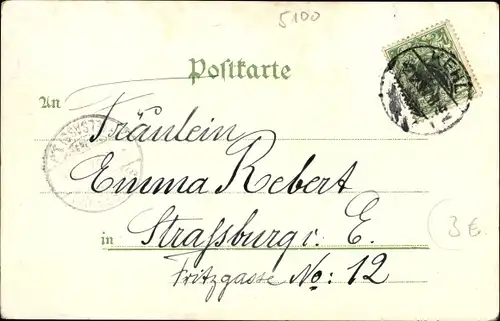 5100
Postkarte
KEHL
An
Fräulein
Emma Rebert
in Straßburg i. E.
Fritzgasse No: 12
3 €